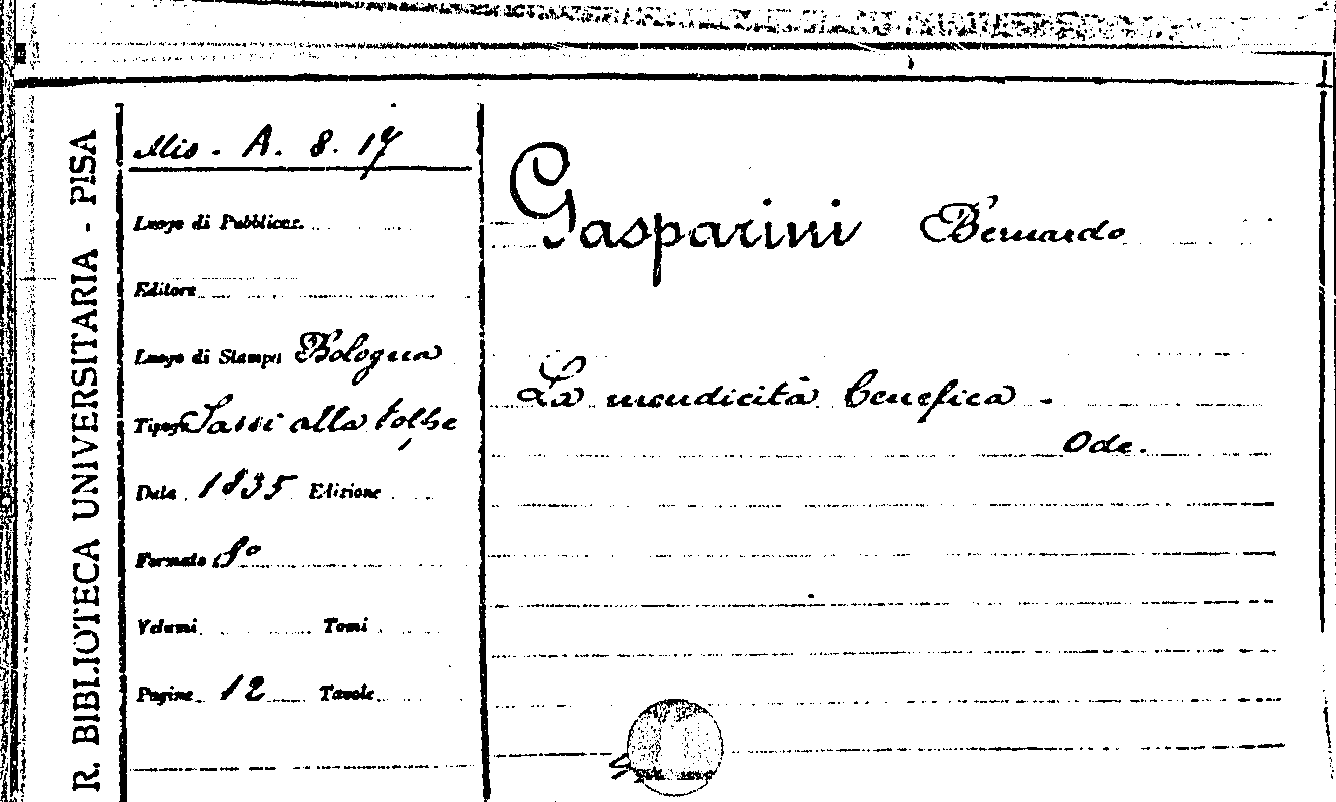 R. BIBLIOTECA UNIVERSITARIA - PISA
Mis. A. 8. 17
Luogo di Pubblicaz.
Editore
Luogo di Stampa Bologna
Tipogr. Sassi alla Volpe
Data 1835 Edizione
Formato 8°
Volumi Tomi
Pagine 12 Tavole
Gasparini Bernardo
La mendicità benefica.
Ode.